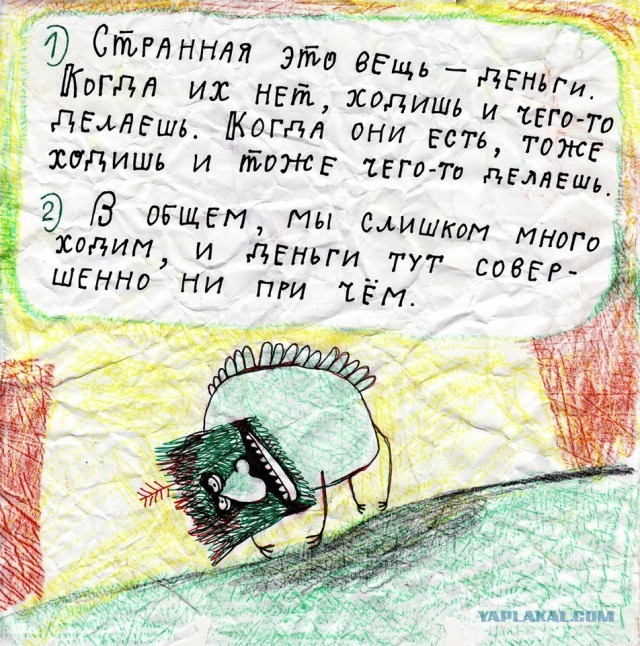 1) Странная это вещь — деньги.
Когда их нет, ходишь и чего-то
делаешь. Когда они есть, тоже
ходишь и тоже чего-то делаешь.
2) В общем, мы слишком много
ходим, и деньги тут совер-
шенно ни при чём.
YAPLAKAL.COM